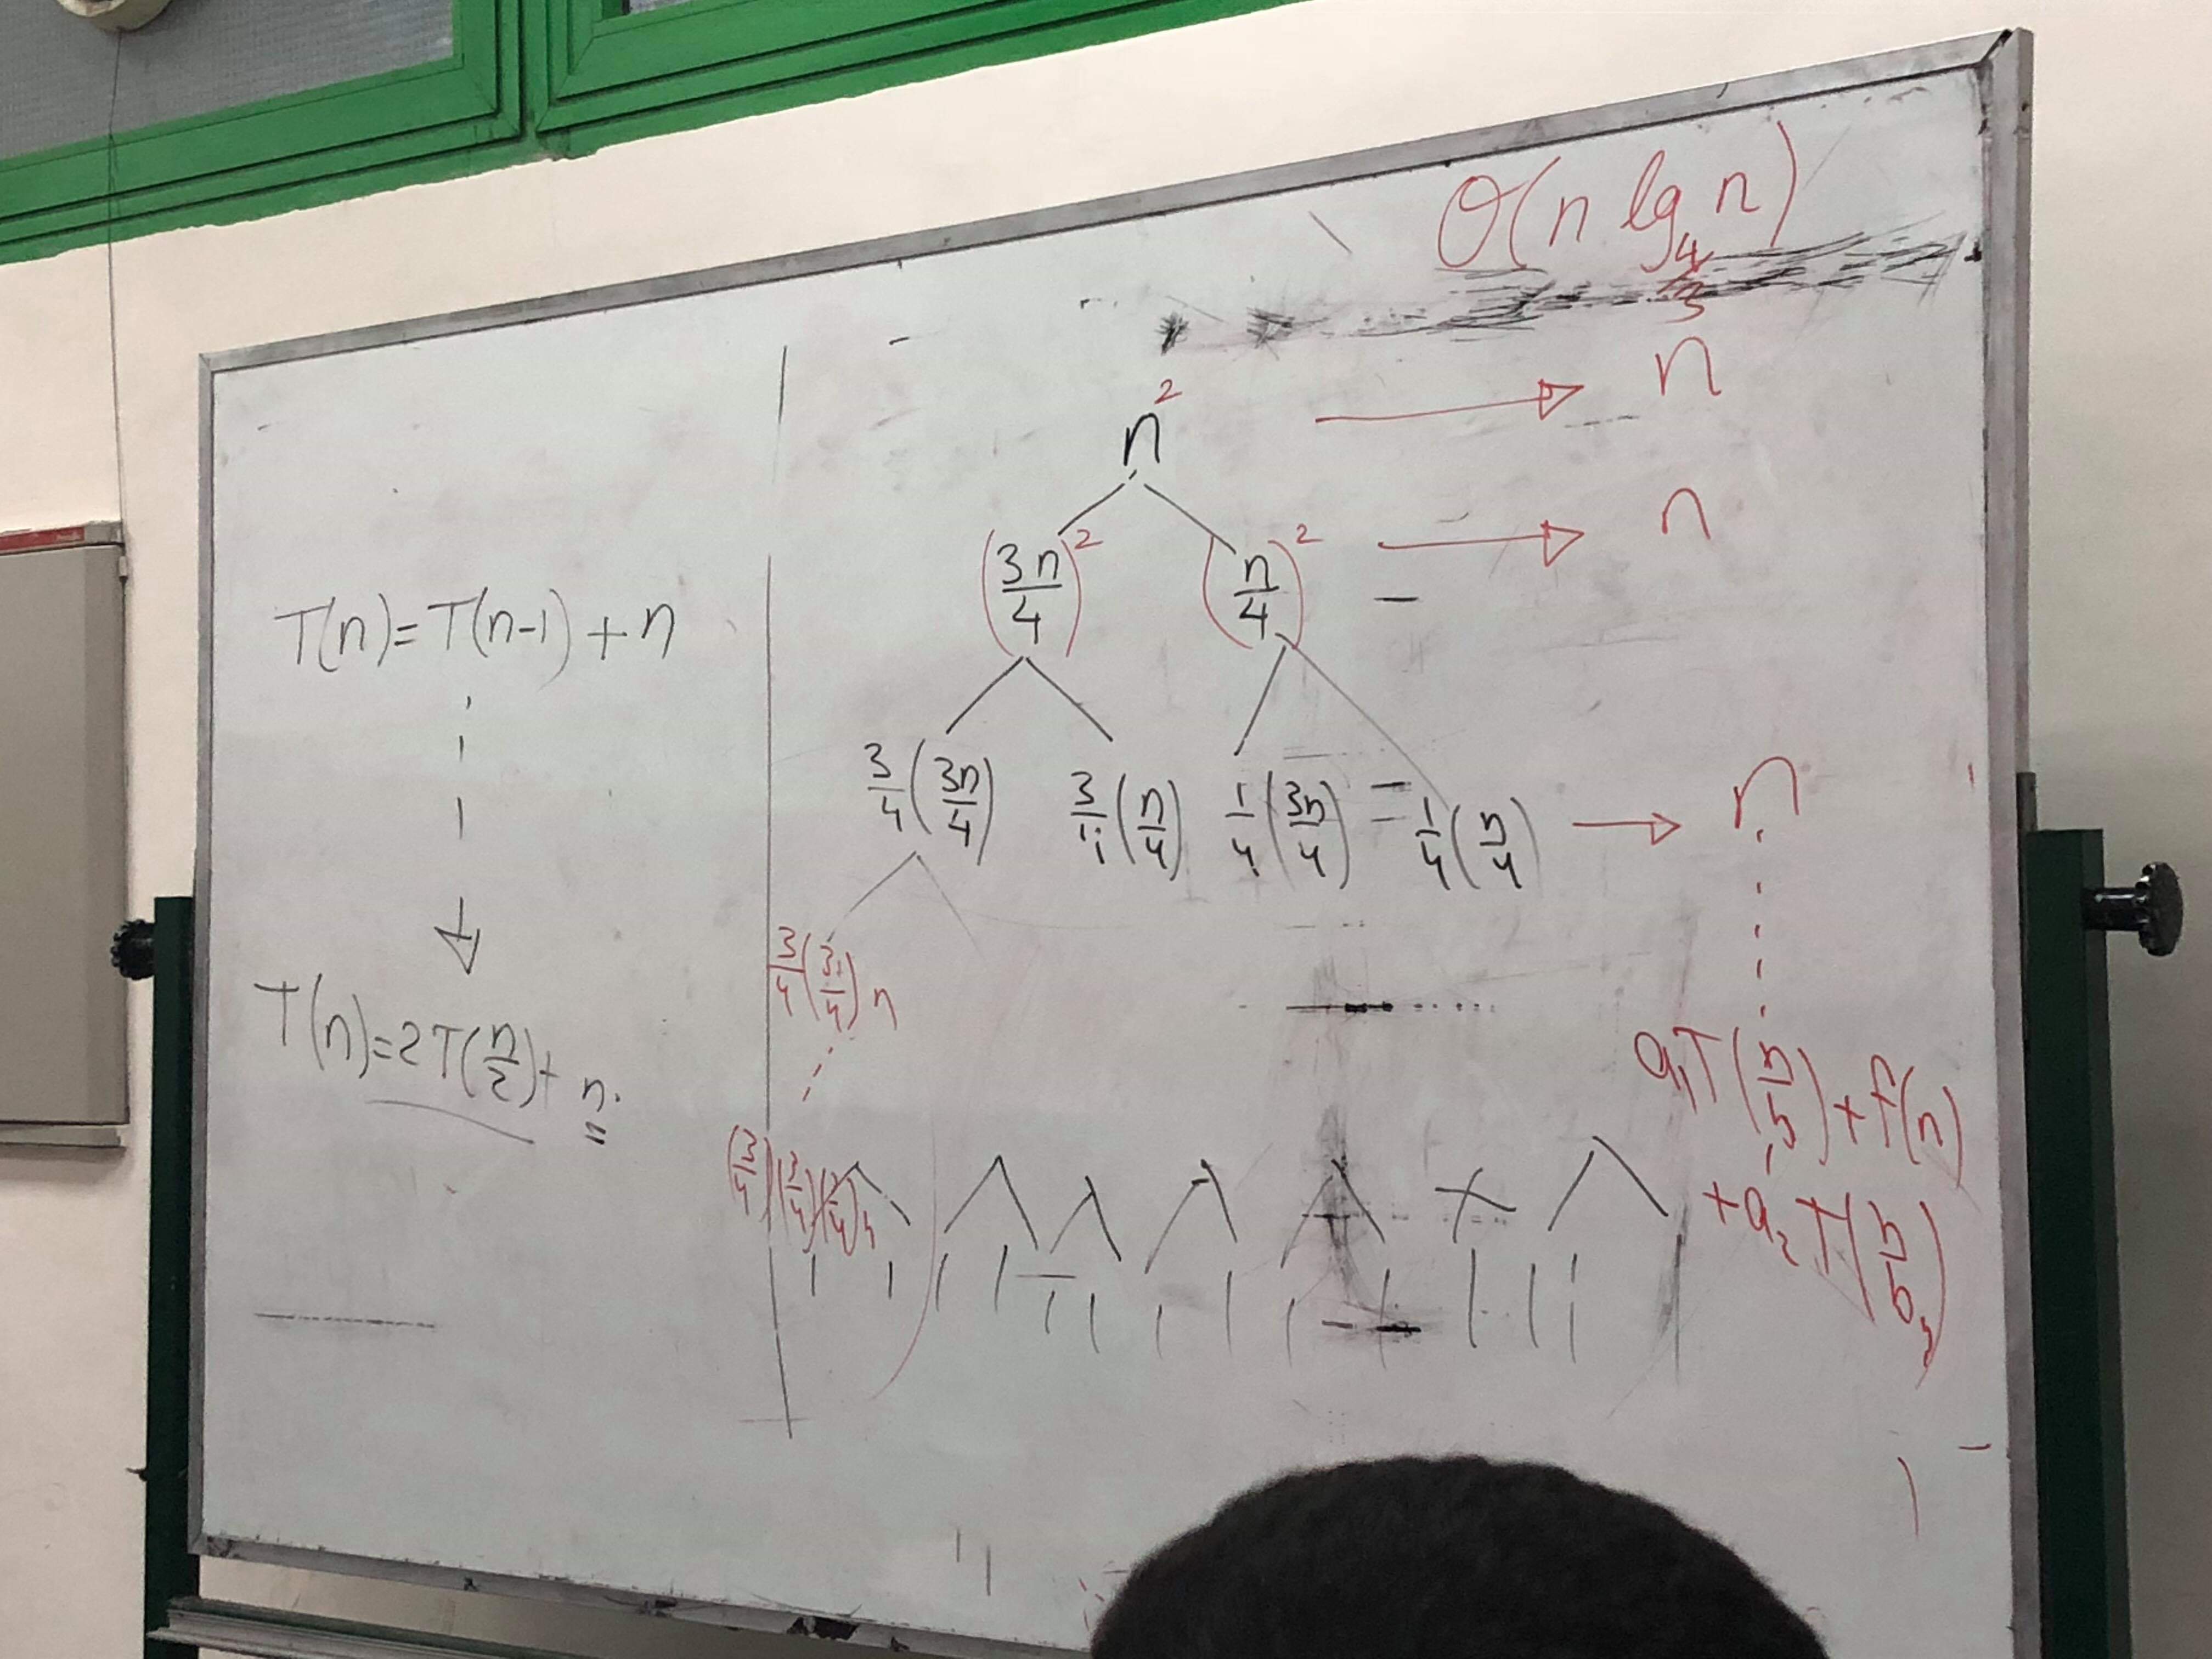 T(n)=T(n-1)+n
T(n)=2T(n/2)+n
O(n lg_{4/3} n)
n^2 → n
(3n/4)^2 (n/4)^2 → n
3/4(3n/4) 3/4(n/4) 1/4(3n/4) 1/4(n/4) → n
3/4(3/4)n
(3/4)(3/4)(3/4)
a_1T(n/b_1)+f(n)
+a_2T(n/b_2)